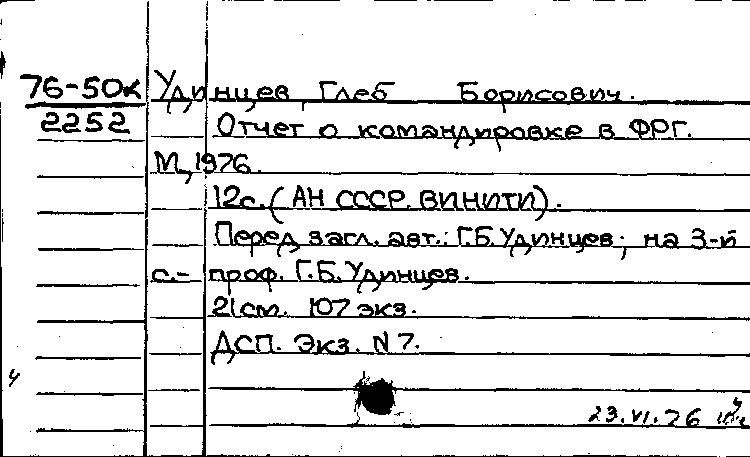 76-50к Удинцев, Глеб Борисович.
2252 Отчет о командировке в ФРГ.
М., 1976.
12с. (АН СССР. ВИНИТИ).
Перед загл. авт.: Г.Б. Удинцев; на 3-й
с.- проф. Г.Б. Удинцев.
21см. 107 экз.
ДСП. Экз. N 7.
ч
23.VI.76